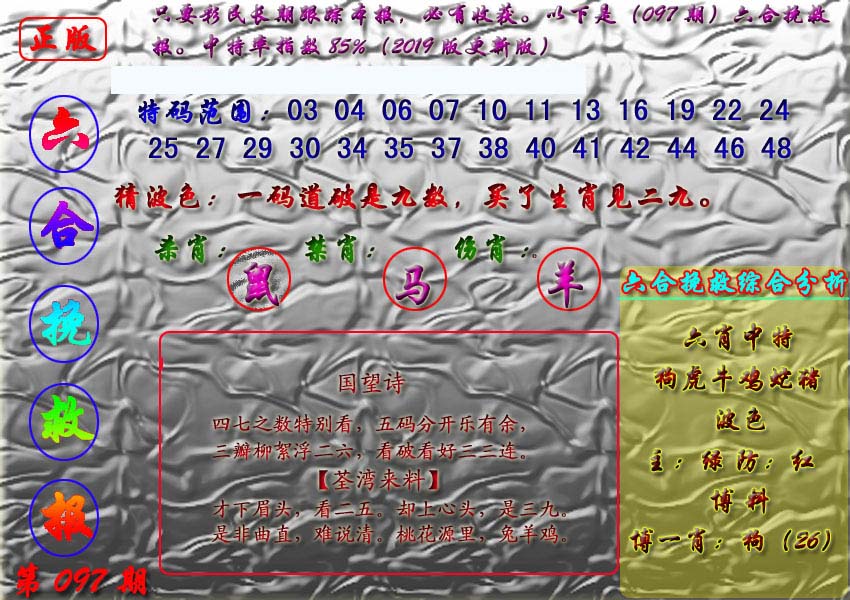 正版
只要彩民长期跟踪本报，必有收获。以下是（097期）六合挽救
报。中特率指数85%（2019版更新版）
六合挽救报
第097期
特码范围：03 04 06 07 10 11 13 16 19 22 24
25 27 29 30 34 35 37 38 40 41 42 44 46 48
猜波色：一码道破是九数，买了生肖见二九。
杀肖：鼠 禁肖：马 伤肖：羊。
国望诗
四七之数特别看，五码分开乐有余，
三瓣柳絮浮二六，看破看好三三连。
【荃湾来料】
才下眉头，看二五。却上心头，是三九。
是非曲直，难说清。桃花源里，兔羊鸡。
六合挽救综合分析
六肖中特
狗虎牛鸡蛇猪
波色
主：绿 防：红
博料
博一肖：狗（26）